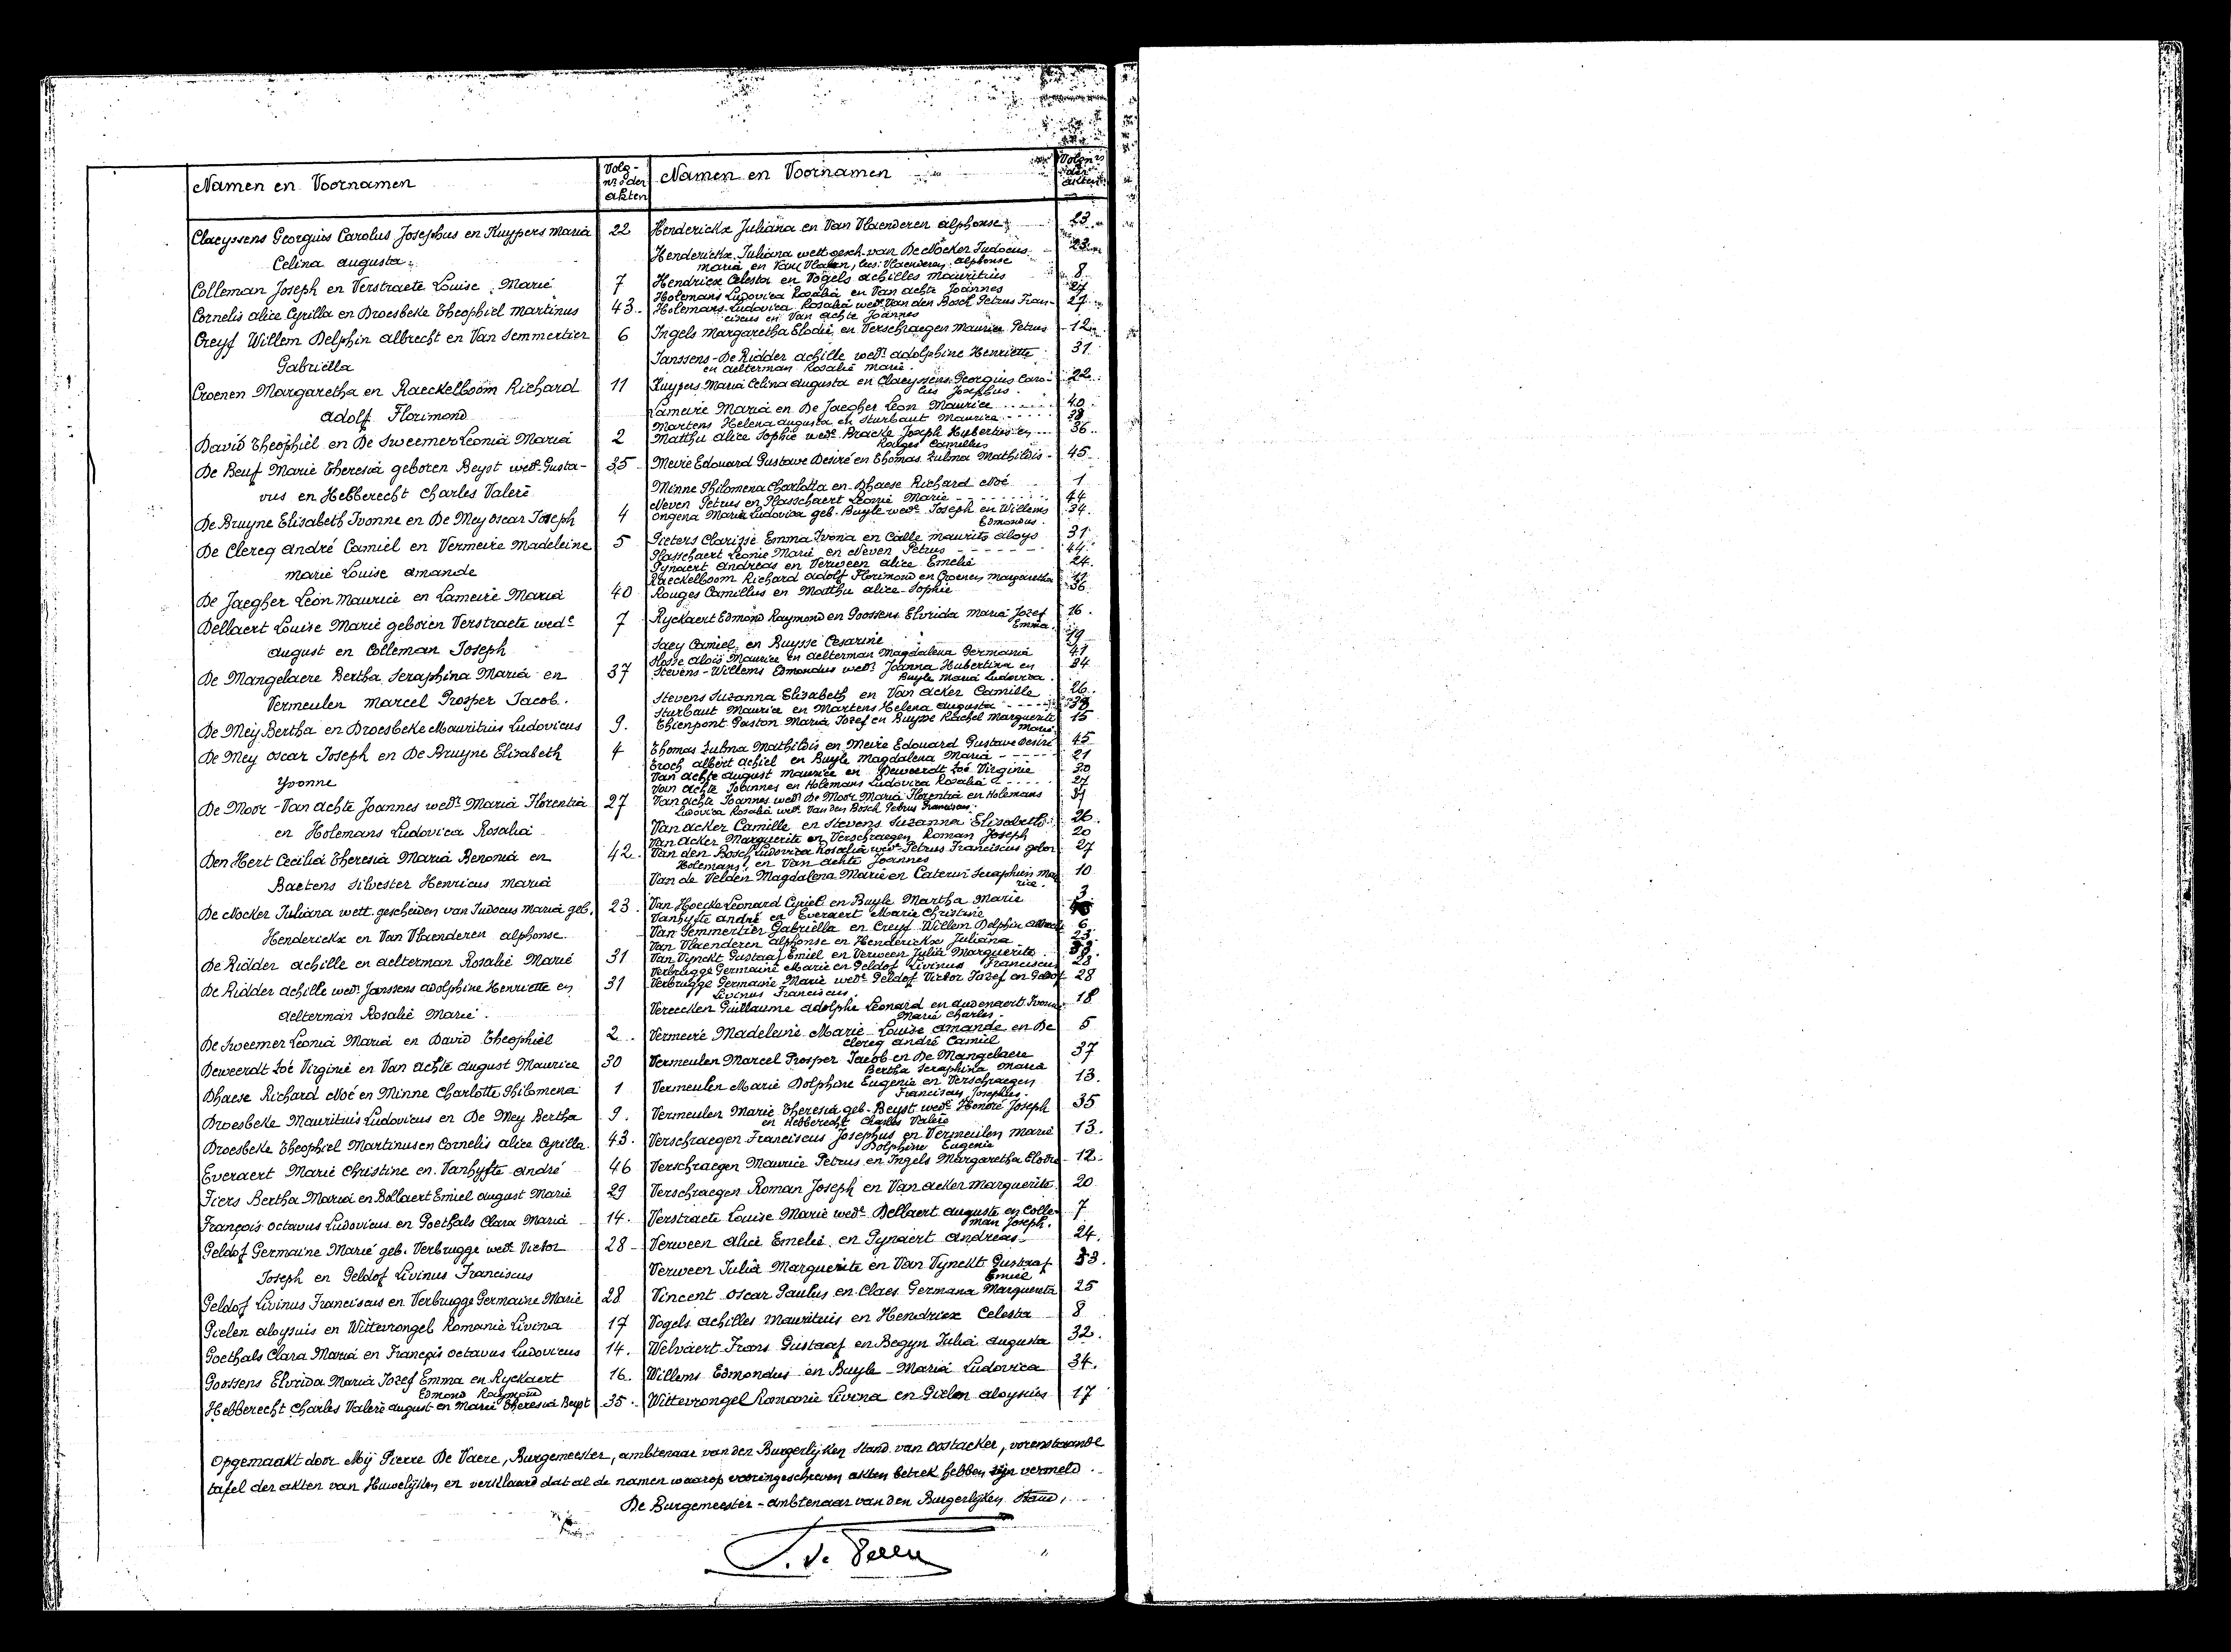 Namen en Voornamen
Volg-
nrs der
akten
Claeyssens Georgius Carolus Josephus en Kuypers Maria 22
Celina Augusta.
Colleman Joseph en Verstraete Louise Marie 7
Cornelis Alice Cyrilla en Droesbeke Theophiel Martinus 43
Creyf Willem Delphin Albrecht en Van Semmertier 6
Gabriella
Croenen Margaretha en Raeckelboom Richard 11
Adolf Florimond
David Theophiel en De Sweemer Leonia Maria 2
De Beuf Marie Theresia geboren Beyst wede Gusta- 35
vus en Hebberecht Charles Valere
De Bruyne Elisabeth Ivonne en De Mey Oscar Joseph 4
De Clercq André Camiel en Vermeire Madeleine 5
Marie Louise Amande
De Jaegher Léon Maurice en Lameire Maria 40
Dellaert Louise Marie geboren Verstraete wede 7
August en Colleman Joseph
De Mangelaere Bertha Seraphina Maria en 37
Vermeulen Marcel Prosper Jacob.
De Mey Bertha en Droesbeke Mauritius Ludovicus 9.
De Mey Oscar Joseph en De Bruyne Elisabeth 4
Yvonne
De Moor - Van Achte Joannes wedr Maria Florentia 27
en Holemans Ludovica Rosalia
Den Hert Cecilia Theresia Maria Benonia en 42.
Baetens Silvester Henricus Maria
De Nocker Juliana wett. gescheiden van Judocus Maria geb. 23.
Henderickx en Van Vlaenderen Alphonse.
De Ridder Achille en Aelterman Rosalie Marie 31
De Ridder Achille wedr Janssens Adolphine Henriette en 31
Aelterman Rosalie Marie.
De Sweemer Leonia Maria en David Theophiel 2.
Deweerdt Zoé Virginie en Van Achte August Maurice 30
Dhaese Richard Noé en Minne Charlotte Philomena 1
Droesbeke Mauritius Ludovicus en De Mey Bertha 9.
Droesbeke Theophiel Martinus en Cornelis Alice Cyrilla 43.
Everaert Marie Christine en Vanhyfte André 46
Fiers Bertha Maria en Bollaert Emiel August Marie 29
François Octavus Ludovicus en Goethals Clara Maria 14.
Geldof Germaine Marie geb. Verbrugge wede Victor 28
Joseph en Geldof Livinus Franciscus
Geldof Livinus Franciscus en Verbrugge Germaine Marie 28
Gielen Aloysius en Wittevrongel Romanie Livina 17
Goethals Clara Maria en François Octavus Ludovicus 14.
Goossens Elvrida Maria Jozef Emma en Ryckaert 16.
Edmond Raymond
Hebberecht Charles Valere August en Marie Theresia Beyst 35.
Namen en Voornamen
Volgnrs
der
akten
Henderickx Juliana en Van Vlaenderen Alphonse 23
Henderickx Juliana wett. gesch. van De Nocker Judocus 23
Maria en Van Vlaen, lees: Vlaenderen Alphonse
Hendriex Celesta en Vogels Achilles Mauritius 8
Holemans Ludovica Rosalia en Van Achte Joannes 27
Holemans Ludovica Rosalia wede Van den Bosch Petrus Fran- 27
ciscus en Van Achte Joannes
Ingels Margaretha Elodie en Verschraegen Maurice Petrus 12
Janssens - De Ridder Achille wedr Adolphine Henriette 31
en Aelterman Rosalie Marie.
Kuypers Maria Celina Augusta en Claeyssens Georgius Caro- 22
lus Josephus.
Lameire Maria en De Jaegher Léon Maurice 40
Martens Helena Augusta en Sturbaut Maurice 38
Matthu Alice Sophie wede Bracke Joseph Hubertus en 36
Rouges Camillus
Mevie Edouard Gustave Desiré en Thomas Zulma Mathildis 45
Minne Philomena Charlotta en Dhaese Richard Noé 1
Neven Petrus en Plasschaert Léonie Marie 44
Ongena Maria Ludovica geb. Buyle wede Joseph en Willems 34.
Edmondus.
Pieters Clarisse Emma Ivona en Calle Maurits Aloys 31
Plasschaert Leonie Marie en Neven Petrus 44
Pynaert Andreas en Verween Alice Emelie 24.
Raeckelboom Richard Adolf Florimond en Croenen Margaretha 11
Rouges Camillus en Matthu Alice Sophie 36
Ryckaert Edmond Raymond en Goossens Elvrida Maria Jozef 16.
Emma.
Saey Camiel en Buysse Cesarine 19
Slosse Aloïs Maurice en Aelterman Magdalena Germania 41
Stevens - Willems Edmondus wedr Joanna Hubertina en 34
Buyle Maria Ludovica.
Stevens Suzanna Elisabeth en Van Acker Camille 26.
Sturbaut Maurice en Martens Helena Augusta 38
Thienpont Gaston Maria Jozef en Buysse Rachel Marguerite 15
Marie
Thomas Zulma Mathildis en Mevie Edouard Gustave Desiré 45
Troch Albert Achiel en Buyle Magdalena Maria 21
Van Achte August Maurice en Deweerdt Zoé Virginie 30
Van Achte Joannes en Holemans Ludovica Rosalia 27
Van Achte Joannes wedr De Moor Maria Florentia en Holemans
Ludovica Rosalia wede Van den Bosch Petrus Franciscus.
Van Acker Camille en Stevens Suzanna Elisabeth 26.
Van Acker Marguerite en Verschraegen Roman Joseph 20
Van den Bosch Ludovica Rosalia wede Petrus Franciscus gebor. 27
Holemans, en Van Achte Joannes
Van de Velden Magdalena Marie en Caterin Seraphien Mau 10
rice.
Van Hoecke Leonard Cyriel en Buyle Martha Marie 3
Vanhyfte André en Everaert Marie Christine
Van Semmertier Gabriella en Creyf Willem Delphin Albrecht 6
Van Vlaenderen Alphonse en Henderickx Juliana 23.
Van Vynckt Gustaaf Emiel en Verween Julia Marguerite 33.
Verbrugge Germaine Marie en Geldof Livinus Franciscus 28
Verbrugge Germaine Marie wede Geldof Victor Jozef en Geldof 28
Livinus Franciscus.
Vereecken Guillaume Adolphe Léonard en Audenaert Ivonne 18
Marie Charles.
Vermeire Madeleine Marie Louise Amande en De 5
Clercq André Camiel
Vermeulen Marcel Prosper Jacob en De Mangelaere 37
Bertha Seraphina Maria
Vermeulen Marie Dolphine Eugenie en Verschraegen 13.
Franciscus Josephus.
Vermeulen Marie Theresia geb. Beyst wede Honoré Joseph 35
en Hebberecht Charles Valère
Verschraegen Franciscus Josephus en Vermeulen Marie 13.
Dolphine Eugenie
Verschraegen Maurice Petrus en Ingels Margaretha Elodie 12.
Verschraegen Roman Joseph en Van Acker Marguerite 20
Verstraete Louise Marie wede Dellaert Auguste en Colle- 7
man Joseph.
Verween Alice Emelie en Pynaert Andreas. 24.
Verween Julia Marguerite en Van Vynckt Gustaaf 33.
Emiel
Vincent Oscar Paulus en Claes Germana Marguereta 25
Vogels Achilles Mauritius en Hendriex Celesta 8
Welvaert Frans Gustaaf en Begyn Julia Augusta 32.
Willems Edmondus en Buyle Maria Ludovica 34.
Wittevrongel Romanie Livina en Gielen Aloysius 17
Opgemaakt door Mij Pierre De Vaere, Burgemeester, ambtenaar van den Burgerlijken Stand van Oostacker, vorenstaande
tafel der akten van Huwelijken en verklaard dat al de namen waarop vooringeschreven akten betrek hebben zijn vermeld.
De Burgemeester-ambtenaar van den Burgerlijken Stand,